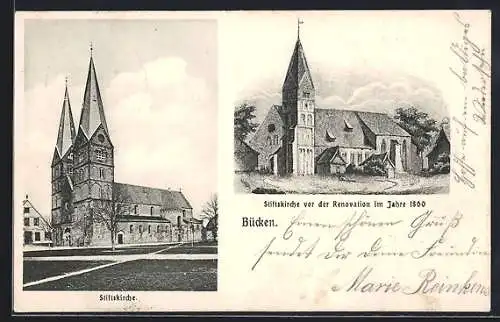 Stiftskirche.
Stiftskirche vor der Renovation im Jahre 1860
Bücken.
Einen schönen Gruß
sendet Dir deine Freundin
Marie Reinkens